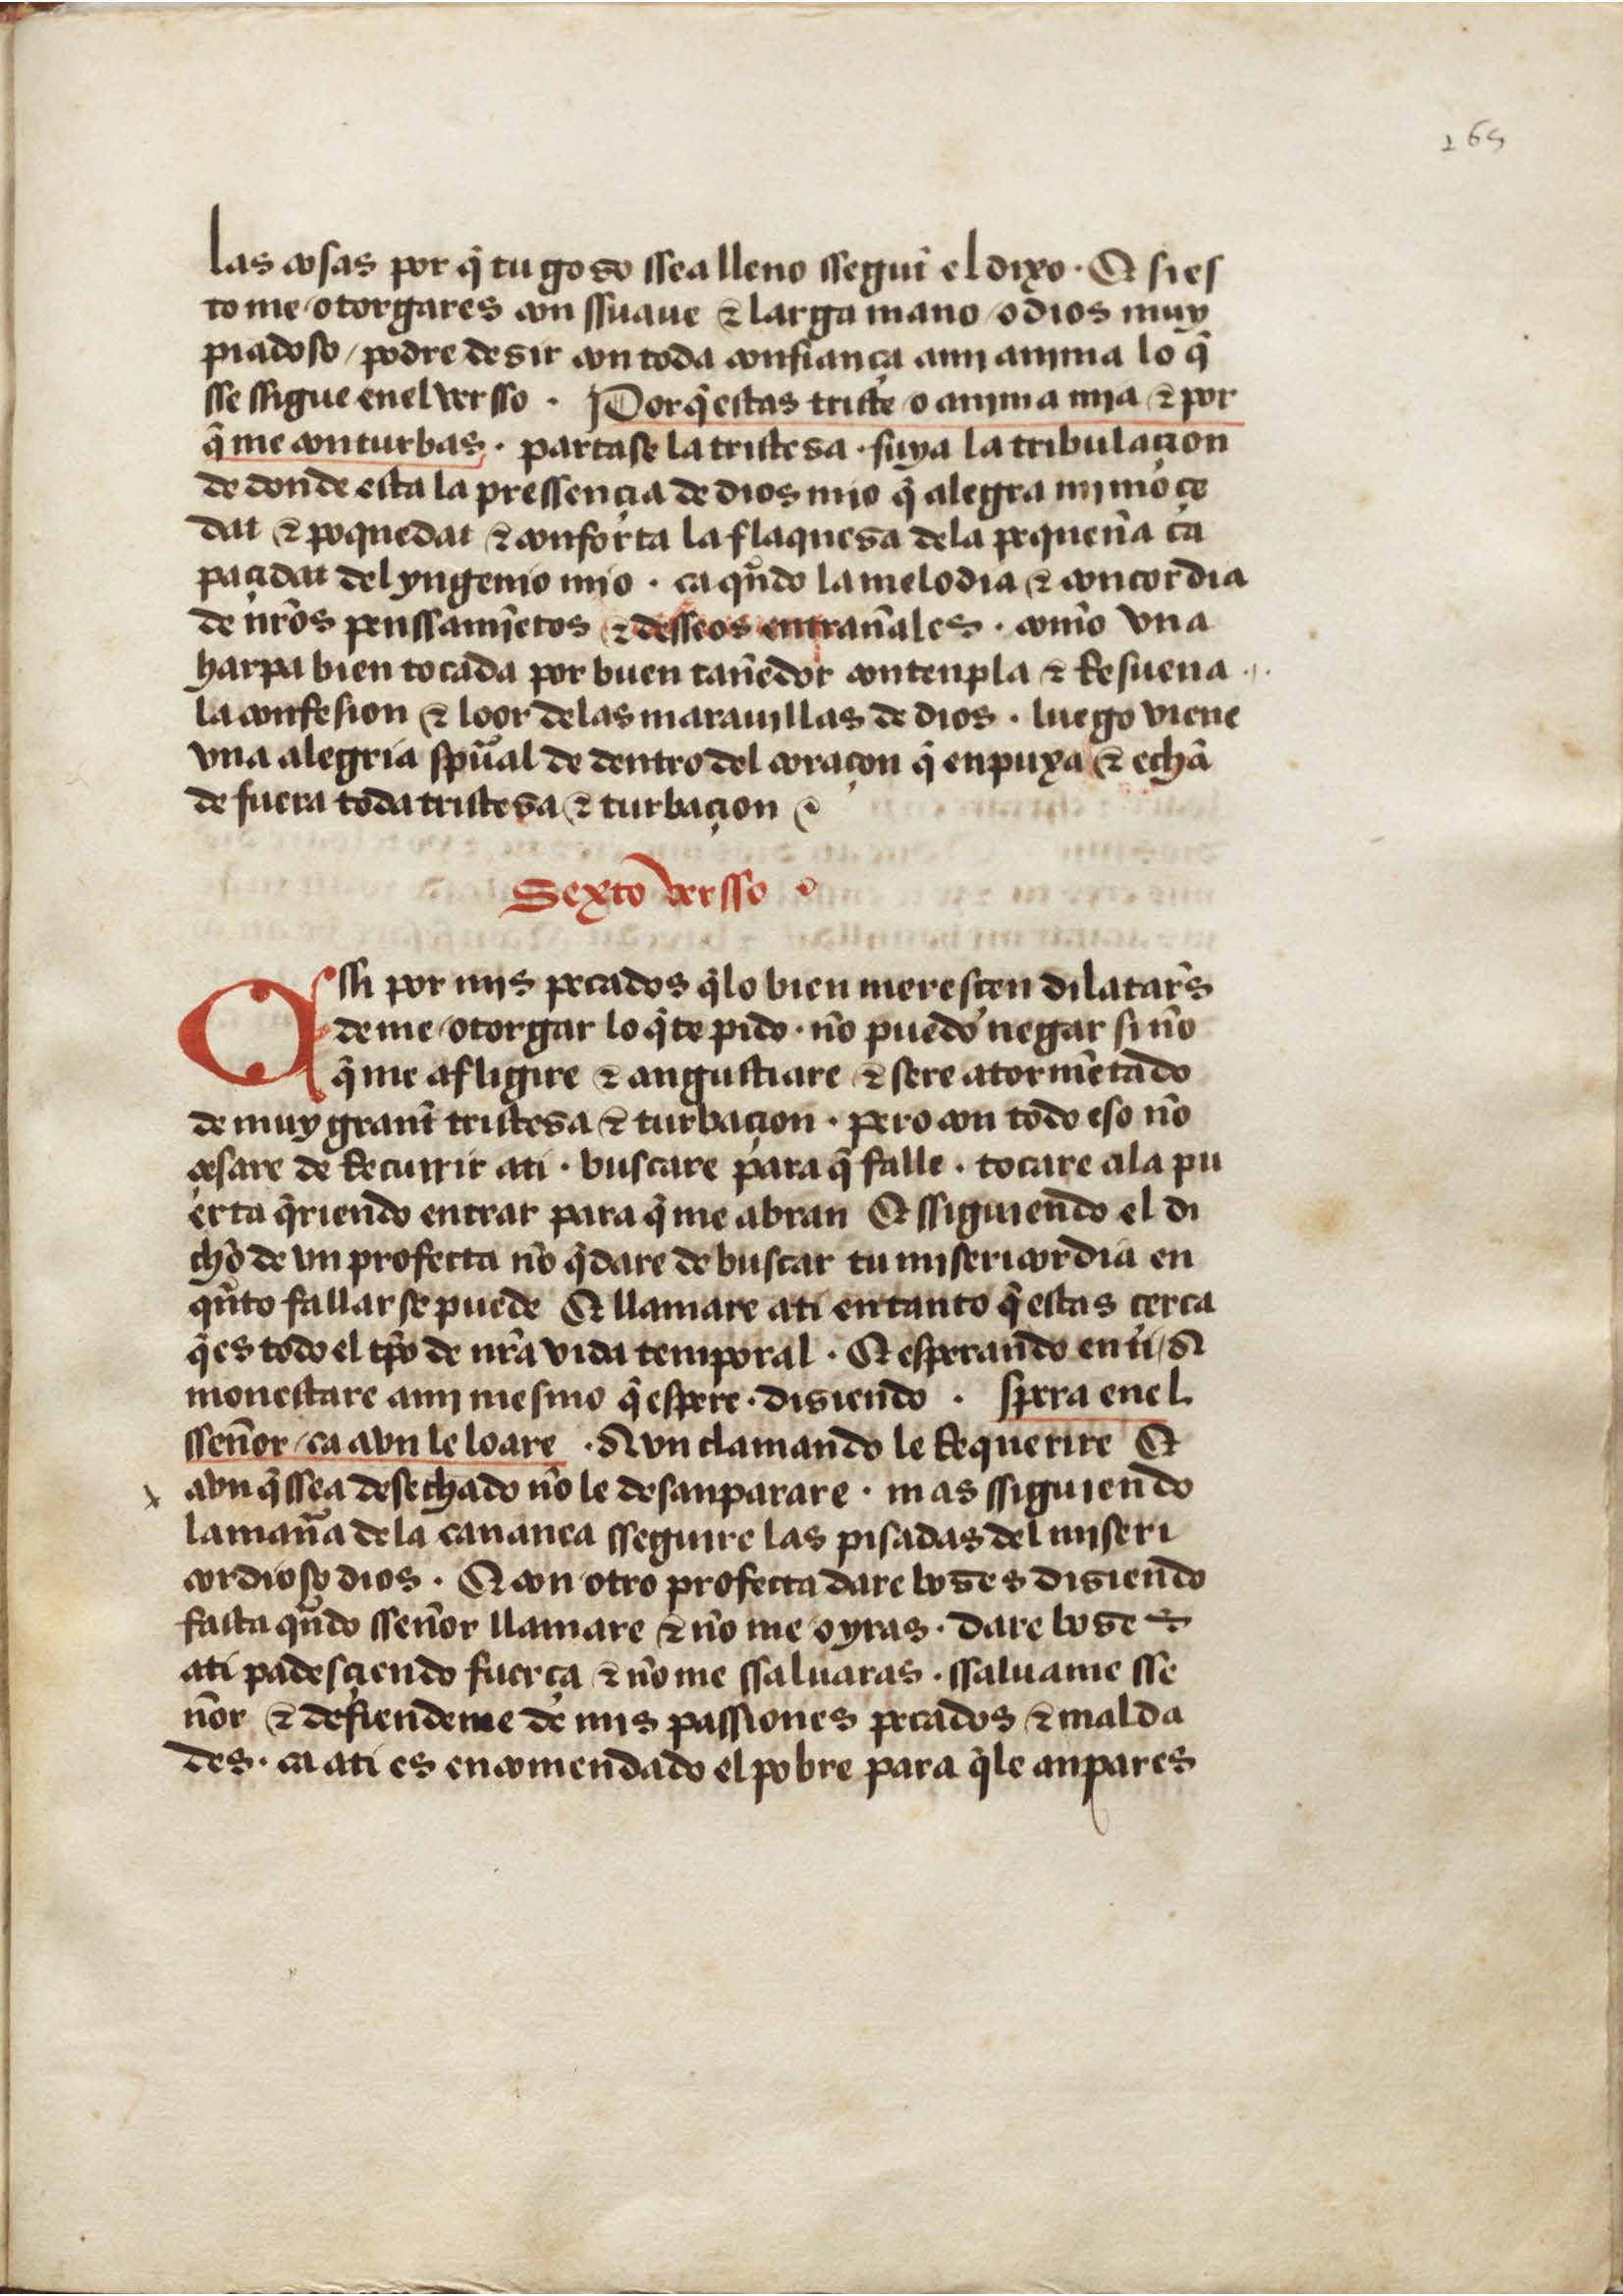 165
las cosas por q̃ tu gozo ssea lleno ssegũt el dixo · Et si es
to me otorgares con ssuaue ⁊ larga mano / o dios muy
piadoso / podre dezir con toda confiança a mj anima lo q̃
sse ssigue en el versso · Por q̃ estas triste o anjma mja ⁊ por
q̃ me conturbas · partase la tristeza · fuya la tribulaçion
de donde esta la pressençia de dios mio q̃ alegra mj moçe
dat ⁊ poquedat ⁊ conforta la flaqueza dela pequeña ca
paçidat del yngenio mjo · ca qñdo la melodia ⁊ concordia
de nr̃os penssamjẽtos ⁊ desseos entrañales · com̃o vna
harpa bien tocada por buen tañedor contenpla ⁊ Resuena ·
la confesion ⁊ loor delas marauillas de dios · luego viene
vna alegria sp̃ual de dentro del coraçon q̃ enpuxa ⁊ echã
de fuera toda tristeza ⁊ turbaçion
Sexto versso
O ssi por mjs pecados q̃ lo bien meresçen dilatar̃s
de me otorgar lo q̃ te pido · ño puedo negar si ño
q̃ me afligire ⁊ angustiare ⁊ sere atormẽtado
de muy grant̃ tristeza ⁊ turbaçion · pero con todo eso ño
çesare de Recurrir ati · buscare para q̃ falle · tocare ala pu
erta q̃riendo entrar para q̃ me abran Et ssiguiendo el di
cho de vn profecta ño q̃dare de buscar tu misericordia en
qñto fallar se puede Et llamare ati entanto q̃ estas cerca
q̃ es todo el tp̃o de nr̃a vida temporal · Et esperando en ti / A
monestare amj mesmo q̃ espere · diziendo · spera enel
sseñor / ca avn le loare · Avn clamando le Requerire Et
avn q̃ ssea desechado ño le desanparare · mas ssiguiendo
la mañ̃a dela cananea sseguire las pisadas del miseri
cordioso dios · Et con otro profecta dare bozes diziendo
fasta qñdo sseñor llamare ⁊ ño me oyras · dare boze s
ati padesçiendo fuerça ⁊ ño me ssaluaras · ssaluame sse
ñor ⁊ defiendeme de mjs passiones pecados ⁊ malda
des · ca ati es encomendado el pobre para q̃ le anpares